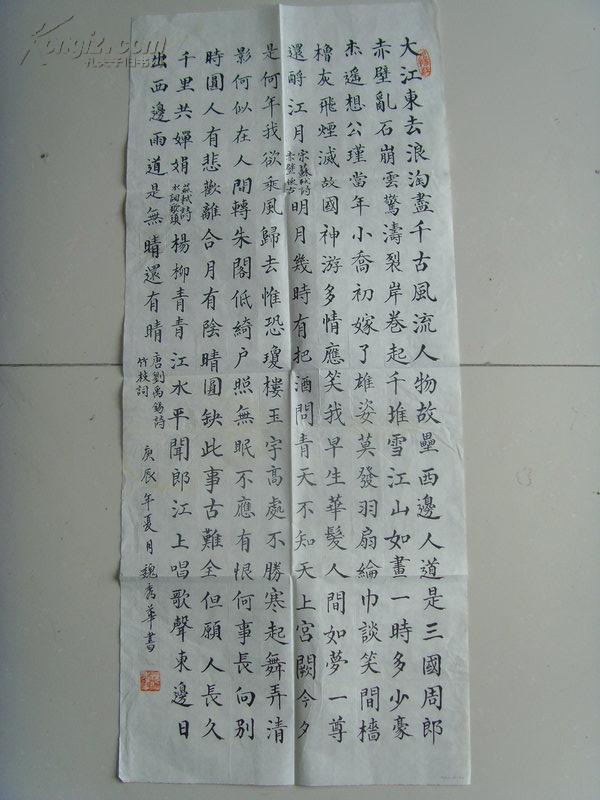 大江東去浪淘盡千古風流人物故壘西邊人道是三國周郎
赤壁亂石崩雲驚濤裂岸卷起千堆雪江山如畫一時多少豪
杰遥想公瑾當年小喬初嫁了雄姿英發羽扇綸巾談笑間檣
櫓灰飛煙滅故國神游多情應笑我早生華髮人間如夢一尊
還酹江月
宋蘇軾詩
赤壁懷古
明月幾時有把酒問青天不知天上宮闕今夕
是何年我欲乘風歸去惟恐瓊樓玉宇高處不勝寒起舞弄清
影何似在人間轉朱閣低綺户照無眠不應有恨何事長向别
時圓人有悲歡離合月有陰晴圓缺此事古難全但願人長久
千里共嬋娟
蘇軾詩
水調歌頭
楊柳青青江水平聞郎江上唱歌聲東邊日
出西邊雨道是無晴還有晴
唐劉禹錫詩
竹枝詞
庚辰年夏月魏秀華書
Kongfz.com
孔夫子旧书网